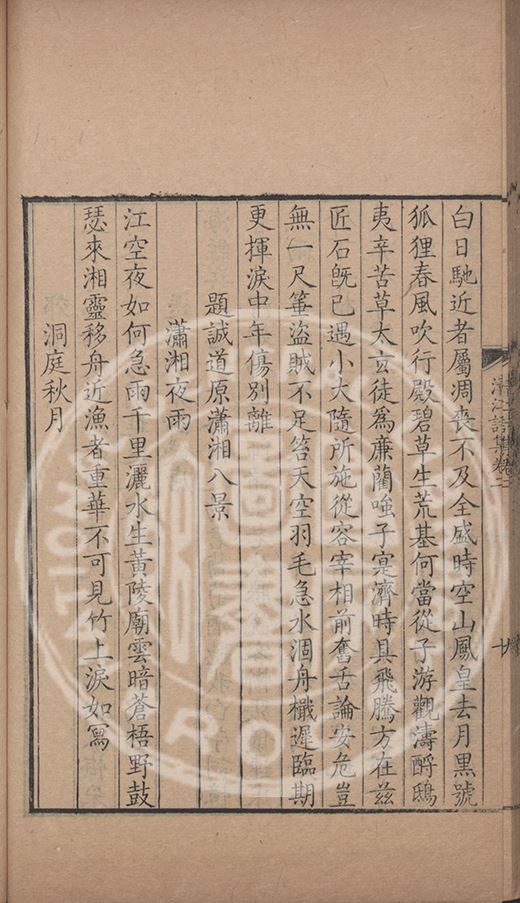 白日馳近者屬凋喪不及全盛時空山鳳皇去月黑號
狐狸春風吹行殿碧草生荒基何當從子游觀濤酹鴟
夷辛苦草太玄徒爲廉藺嗤子寔濟時具飛騰方在兹
匠石旣已遇小大隨所施從容宰相前奮舌論安危豈
無一尺箠盜賊不足笞天空羽毛急水涸舟檝遲臨期
更揮淚中年傷別離
題誠道原瀟湘八景
瀟湘夜雨
江空夜如何急雨千里灑水生黃陵廟雲暗蒼梧野鼓
瑟來湘靈移舟近漁者重華不可見竹上淚如寫
洞庭秋月
清江詩集卷二
廿